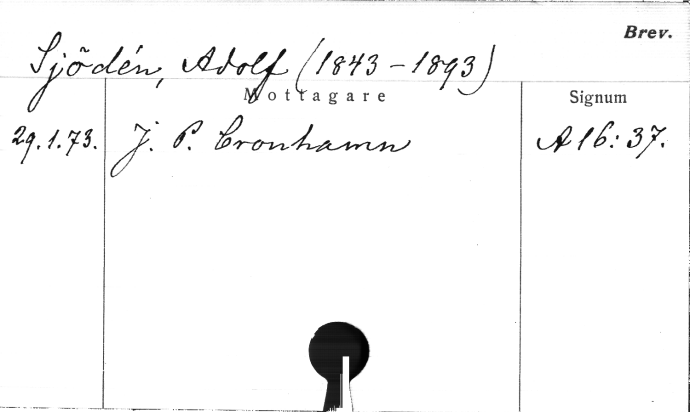 Brev.
Sjödén, Adolf (1843-1893)
Mottagare Signum
29.1.73. J. P. Cronhamn A16:37.